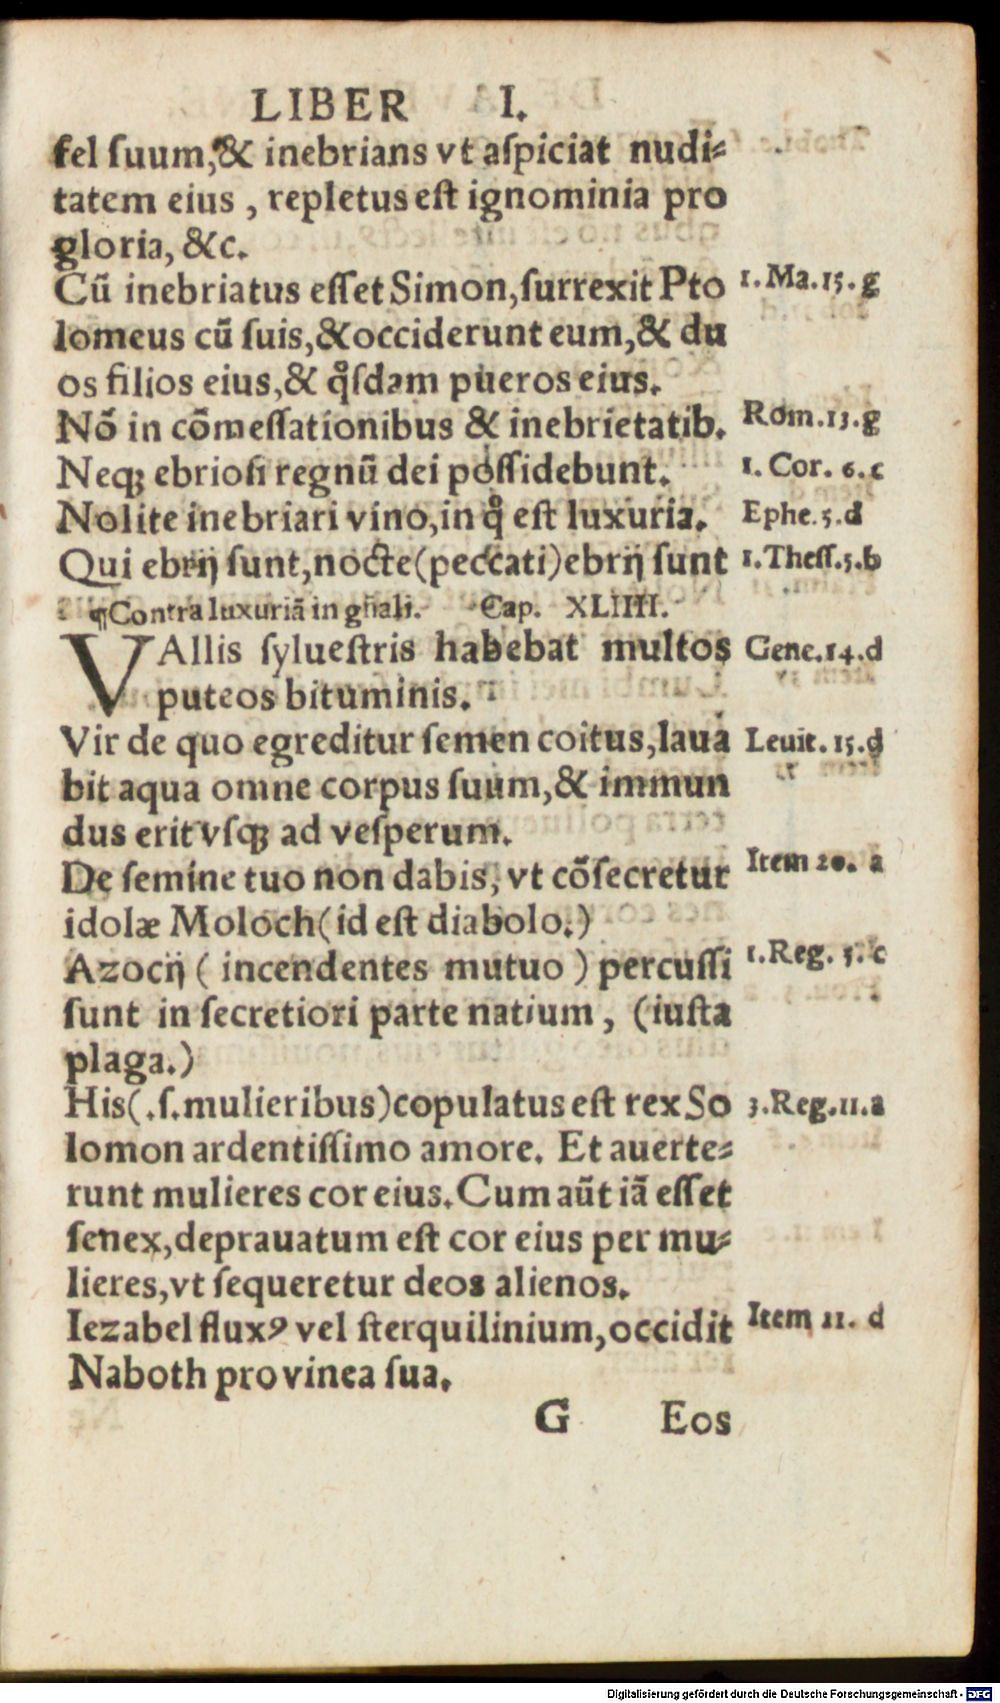 LIBER I.
fel ſuum,& inebrians vt aſpiciat nudi⸗
tatem eius , repletus eſt ignominia pro
gloria, &c.
Cũ inebriatus eſſet Simon,ſurrexit Pto 1. Ma. 15. g
lomeus cũ ſuis,& occiderunt eum,& du
os filios eius,& qͦſdam pueros eius.
Nõ in cõmeſſationibus & inebrietatib. Rom. 13. g
Neqꝫ ebrioſi regnũ dei poſſidebunt. 1. Cor. 6. c
Nolite inebriari vino,in qͦ eſt luxuria. Ephe. 5. d
Qui ebrij ſunt,nocte(peccati)ebrij ſunt 1. Theſſ. 5. b
¶Contra luxuriã in gñali. Cap. XLIIII.
VAllis ſylueſtris habebat multos Gene. 14. d
puteos bituminis.
Vir de quo egreditur ſemen coitus,laua Leuit. 15. d
bit aqua omne corpus ſuum,& immun
dus erit vſqꝫ ad veſperum.
De ſemine tuo non dabis, vt cõſecretur Item 20. a
idolæ Moloch(id eſt diabolo.)
Azocij ( incendentes mutuo ) percuſſi 1. Reg. 5. c
ſunt in ſecretiori parte natium , (iuſta
plaga.)
His(.ſ.mulieribus)copulatus eſt rex So 3. Reg. 11. a
lomon ardentiſſimo amore. Et auerte⸗
runt mulieres cor eius. Cum aũt iã eſſet
ſenex,deprauatum eſt cor eius per mu⸗
lieres,vt ſequeretur deos alienos.
Iezabel fluxꝰ vel ſterquilinium,occidit Item 21. d
Naboth pro vinea ſua.
G Eos
Digitalisierung gefördert durch die Deutsche Forschungsgemeinschaft - DFG